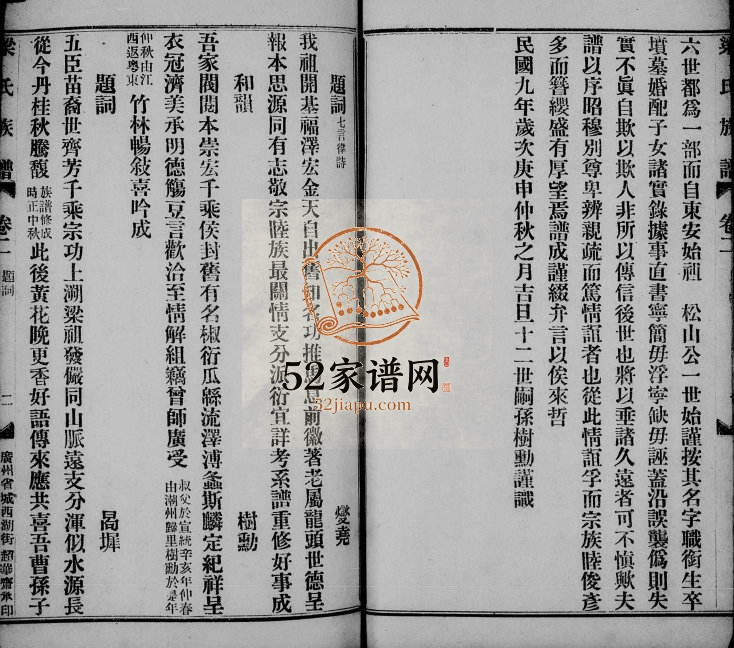 六世都爲一部而自東安始祖　松山公一世始謹按其名字職銜生卒
墳墓婚配子女諸實錄據事直書寧簡毋浮寧缺毋誣蓋沿誤襲僞則失
實不眞自欺以欺人非所以傳信後世也將以垂諸久遠者可不愼歟夫
譜以序昭穆別尊卑辨親疏而篤情誼者也從此情誼孚而宗族睦俊彥
多而簪纓盛有厚望焉譜成謹綴弁言以俟來哲
民國九年歲次庚申仲秋之月吉旦十二世嗣孫樹勳謹識
題詞 七言律詩　　　　　　　燮堯
我祖開基福澤宏金天自出舊知名功推
前徽著老屬龍頭世德呈
報本思源同有志敬宗睦族最關情支分派衍宜詳考系譜重修好事成
和韻　　　　　　　樹勳
吾家閥閱本崇宏千乘侯封舊有名椒衍瓜緜流澤溥螽斯麟定紀祥呈
衣冠濟美承明德觴豆言歡洽至情解組竊曾師廣受 叔父於宣統辛亥年仲春由潮州歸里樹勳於是年
仲秋由江西返粵東 竹林暢敍喜吟成
題詞　　　　　　　曷墀
五臣苗裔世齊芳千乘宗功上溯梁祖發儼同山脈遠支分渾似水源長
從今丹桂秋騰馥 族譜修成時正中秋 此後黃花晚更香好語傳來應共喜吾曹孫子
梁氏族譜 卷二 題詞 二 廣州省城西湖街 超華齋承印
梁氏族譜 卷二
52家谱网
52jiapu.com